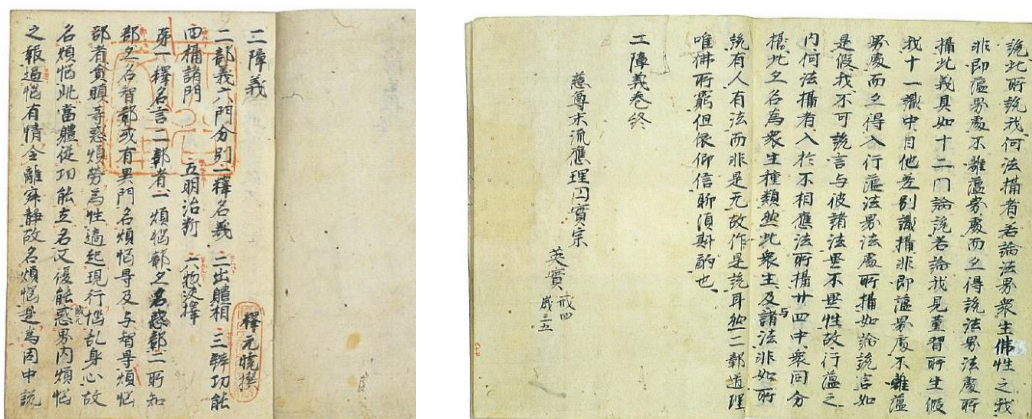 二障義 釋元曉撰
二郭義六門分別一釋名義 二出體相 三辨功能
四攝諸門 五明治断 六惣決擇
第一釋名言二郭者一煩惱郭亦名惑郭二所知
郭亦名智郭或有異門名煩惱㝵及与智㝵煩惱
郭者貪瞋等惑煩勞為性適起現行惱乱身心故
名煩惱此當體從功能立名又復能惑界内煩惱
之報逼惱有情令離寂靜故名煩惱是為因中説
說此所說我何法攝者若論法界衆生佛性之我
非即蘊界處不離蘊界處而亦得說法界法處所
攝此義具如十二門論說若論我見熏習所生假
我十一識中自他差別識攝非即蘊界處不離蘊
界處而亦得入行蘊法界法處所攝如論說言如
是假我不可說言与彼諸法異不異性故行蘊之
内何法攝者入於不相應法所攝廿四中衆同分
攝此亦名為衆生種類然此衆生及与諸法非如所
說有人有法而非是无故作是說耳然二郭道理
唯佛所窮但依仰信聊須斟酌也
二障義卷終
慈尊末流應理円實宗
英實 戒四 歳三五